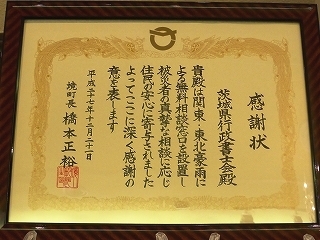 感謝状
茨城県行政書士会殿
貴殿は関東・東北豪雨に
よる無料相談窓口を設置し
被災者の真摯な相談に応じ
住民の安心に寄与されました
よってここに深く感謝の
意を表します
平成二十七年十二月二十一日
境町長 橋本正裕